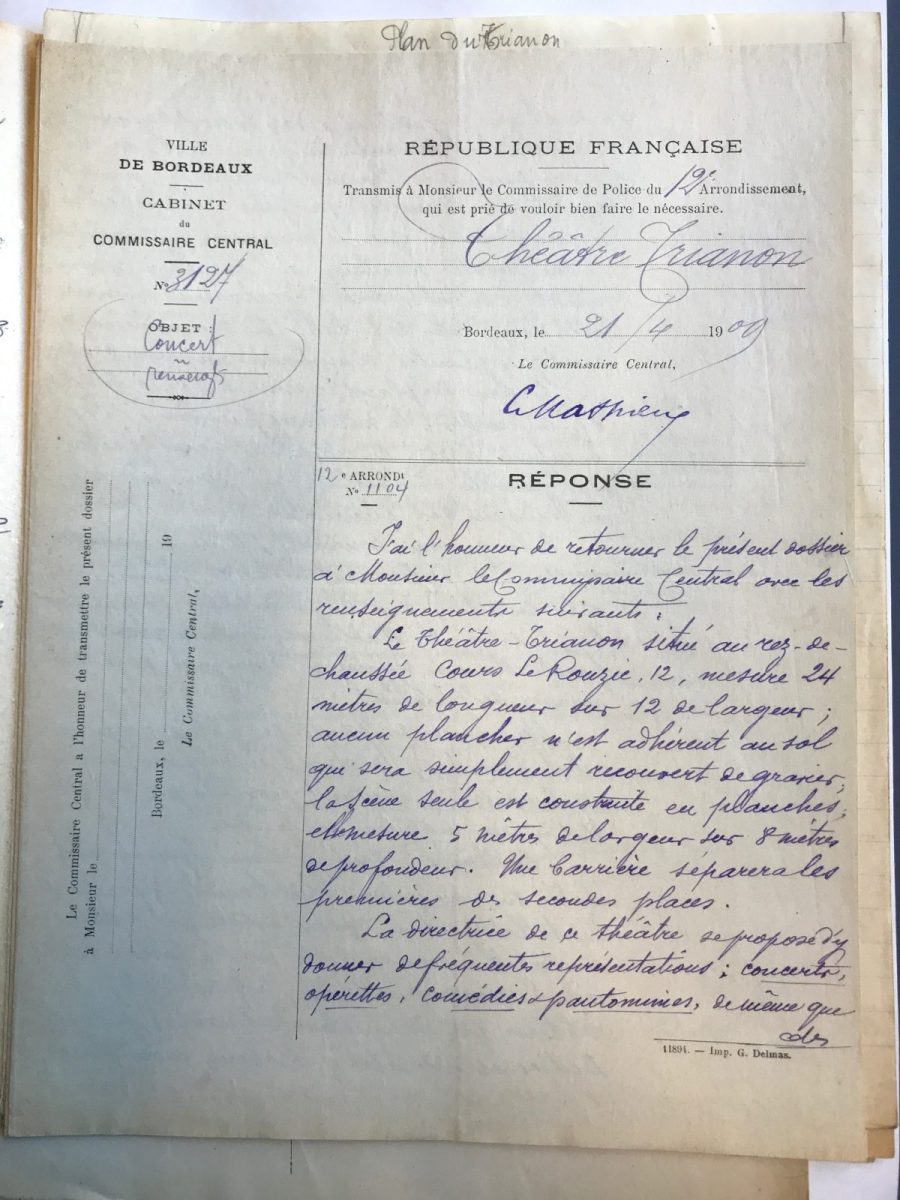 Plan du Trianon
VILLE
DE BORDEAUX
CABINET
du
COMMISSAIRE CENTRAL
No 3127
OBJET :
Concert
renseigts
RÉPUBLIQUE FRANÇAISE
Transmis à Monsieur le Commissaire de Police du 12e Arrondissement,
qui est prié de vouloir bien faire le nécessaire.
Théâtre Trianon
Bordeaux, le 21/4 1909
Le Commissaire Central,
CMathieu
12e ARRONDt
No 1104
RÉPONSE
J'ai l'honneur de retourner le présent dossier
à Monsieur le Commissaire Central avec les
renseignements suivants :
Le Théâtre-Trianon situé au rez-de-
chaussée Cours Le Rouzic, 12, mesure 24
mètres de longueur sur 12 de largeur ;
aucun plancher n'est adhérent au sol
qui sera simplement recouvert de gravier,
la scène seule est construite en planches,
et mesure 5 mètres de largeur sur 8 mètres
de profondeur. Une barrière séparera les
premières des secondes places.
La directrice de ce théâtre se propose d'y
donner de fréquentes représentations ; concerts,
opérettes, comédies & pantomimes, de même que
des
11894. — Imp. G. Delmas.
Le Commissaire Central a l'honneur de transmettre le présent dossier
à Monsieur le
Bordeaux, le 19
Le Commissaire Central,